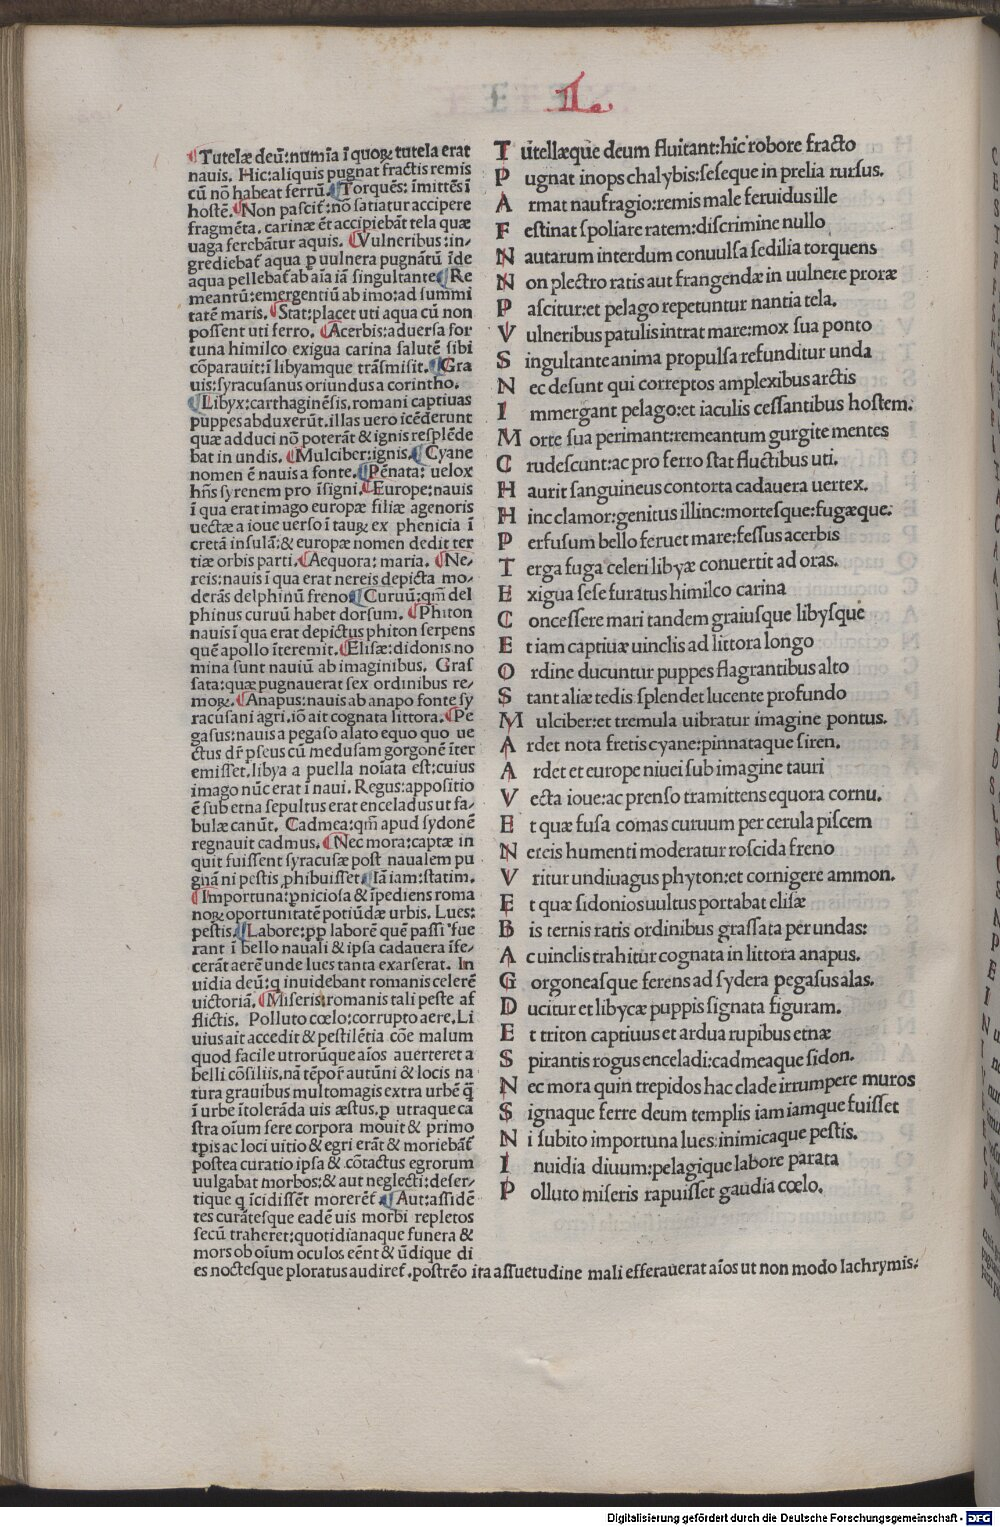 L.
¶Tutelæ deū:numīa ī quoꝝ tutela erat
nauis. Hic:aliquis pugnat fractis remis
cū nō habeat ferrū.¶Torquēs: īmittēs ī
hostē.¶Non pascit̄:nō satiatur accipere
fragmēta. carinæ ēt accipiebāt tela quæ
uaga ferebātur aquis. ¶Vulneribus:in-
grediebat̄ aqua ꝑ uulnera pugnātū īde
aqua pellebat̄ ab aīa iā singultante¶Re
meantū:emergentiū ab imo:ad summi
tatē maris. ¶Stat:placet uti aqua cū non
possent uti ferro. ¶Acerbis:aduersa for
tuna himilco exigua carina salutē sibi
cōparauit:ī libyamque trāsmisit.¶Gra
uis:syracusanus oriundus a corintho.
¶Libyx:carthaginēsis. romani captiuas
puppes abduxerūt. illas uero icēderunt
quæ adduci nō poterāt & ignis resplēde
bat in undis. ¶Mulciber:ignis.¶Cyane
nomen ē nauis a fonte.¶Pēnata: uelox
hn̄s syrenem pro īsigni.¶Europe:nauis
ī qua erat imago europæ filiæ agenoris
uectæ a ioue uerso ī tauꝝ ex phenicia ī
cretā insulā:& europæ nomen dedit ter
tiæ orbis parti.¶Aequora: maria. ¶Ne-
reis:nauis ī qua erat nereis depicta mo-
derās delphinū freno¶Curuū:qm̄ del
phinus curuū habet dorsum. ¶Phiton
nauis ī qua erat depictus phiton serpens
quē apollo īteremit.¶Elisæ:didonis no
mina sunt nauiū ab imaginibus. Gras
sata:quæ pugnauerat sex ordinibus re-
moꝝ.¶Anapus:nauis ab anapo fonte sy
racusani agri.iō ait cognata littora.¶Pe
gasus:nauis a pegaso alato equo quo ue
ctus dr̄ pseus cū medusam gorgonē īter
emisset.libya a puella noīata est:cuius
imago nūc erat ī naui. Regus:appositio
ē sub etna sepultus erat enceladus ut fa-
bulæ canūt. Cadmea:qm̄ apud sydonē
regnauit cadmus.¶Nec mora:captæ in
quit fuissent syracusæ post naualem pu
gnā ni pestis ꝓhibuisset¶Iā iam:statim.
¶Importuna:ꝑniciosa & īpediens roma
noꝝ oportunitatē potiūdæ urbis. Lues:
pestis.¶Labore:ꝓp laborē quē passi fue
rant ī bello nauali & ipsa cadauera īfe-
cerāt aerē unde lues tanta exarserat. In
uidia deū:q̄ inuidebant romanis celerē
uictoriā.¶Miseris:romanis tali peste af
flictis. Polluto cœlo:corrupto aere. Li
uius ait accedit & pestilētia cōe malum
quod facile utrorūque aīos auerteret a
belli cōsiliis.nā tēpoꝛ̄ autūni & locis na
tura grauibus multomagis extra urbē q̄
ī urbe ītolerāda uis æstus.ꝑ utraque ca
stra oīum fere corpora mouit & primo
tꝑis ac loci uitio & egri erāt & moriebāt̄
postea curatio ipsa & cōtactus egrorum
uulgabat morbos:& aut neglecti:deser-
tique q īcidissēt morerēt̄.¶Aut:assidē
tes curātesque eadē uis morbi repletos
secū traheret:quotidianaque funera &
mors ob oīum oculos eēnt & ūdique di
es noctesque ploratus audiret̄.postrēo ita assuetudine mali efferauerat aīos ut non modo lachrymis:
T utellæque deum fluitant:hic robore fracto
P ugnat inops chalybis:seseque in prelia rursus.
A rmat naufragio:remis male feruidus ille
F estinat spoliare ratem:discrimine nullo
N autarum interdum conuulsa sedilia torquens
N on plectro ratis aut frangendæ in uulnere proræ
P ascitur:et pelago repetuntur nantia tela.
V ulneribus patulis intrat mare:mox sua ponto
S ingultante anima propulsa refunditur unda
N ec desunt qui correptos amplexibus arctis
I mmergant pelago:et iaculis cessantibus hostem:
M orte sua perimant:remeantum gurgite mentes
C rudescunt:ac pro ferro stat fluctibus uti.
H aurit sanguineus contorta cadauera uertex.
H inc clamor:genitus illinc:mortesque:fugæque.
P erfusum bello feruet mare:fessus acerbis
T erga fuga celeri libyæ conuertit ad oras.
E xigua sese furatus himilco carina
C oncessere mari tandem graiusque libysque
E t iam captiuæ uinclis ad littora longo
O rdine ducuntur puppes flagrantibus alto
S tant aliæ tedis splendet lucente profundo
M ulciber:et tremula uibratur imagine pontus.
A rdet nota fretis cyane:pinnataque siren.
A rdet et europe niuei sub imagine tauri
V ecta ioue:ac prenso tramittens equora cornu.
E t quæ fusa comas curuum per cerula piscem
N ereis humenti moderatur roscida freno
V ritur undiuagus phyton:et cornigere ammon.
E t quæ sidonios uultus portabat elisæ
B is ternis ratis ordinibus grassata per undas:
A c uinclis trahitur cognata in littora anapus.
G orgoneasque ferens ad sydera pegasus alas.
D ucitur et libycæ puppis signata figuram.
E t triton captiuus et ardua rupibus etnæ
S pirantis rogus enceladi:cadmeaque sidon.
N ec mora quin trepidos hac clade irrumpere muros
S ignaque ferre deum templis iam iamque fuisset
N i subito importuna lues:inimicaque pestis.
I nuidia diuum:pelagique labore parata
P olluto miseris rapuisset gaudia cœlo.
Digitalisierung gefördert durch die Deutsche Forschungsgemeinschaft - DFG